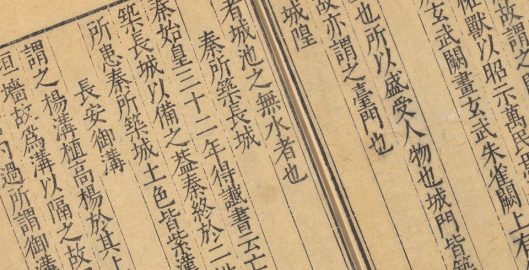 故謂之
獸以昭示萬民
玄武闕畫玄武朱雀闕上
也所以盛受人物也城門皆築
故亦謂之臺門也
城隍
者城池之無水者也
秦所築長城
秦始皇三十二年得讖書云亡
築長城以備之蓋秦終於二世
所患秦所築城土色皆紫漢
長安御溝
謂之楊溝植高楊於其上
垣墻故爲溝以隔之故
過所謂御溝